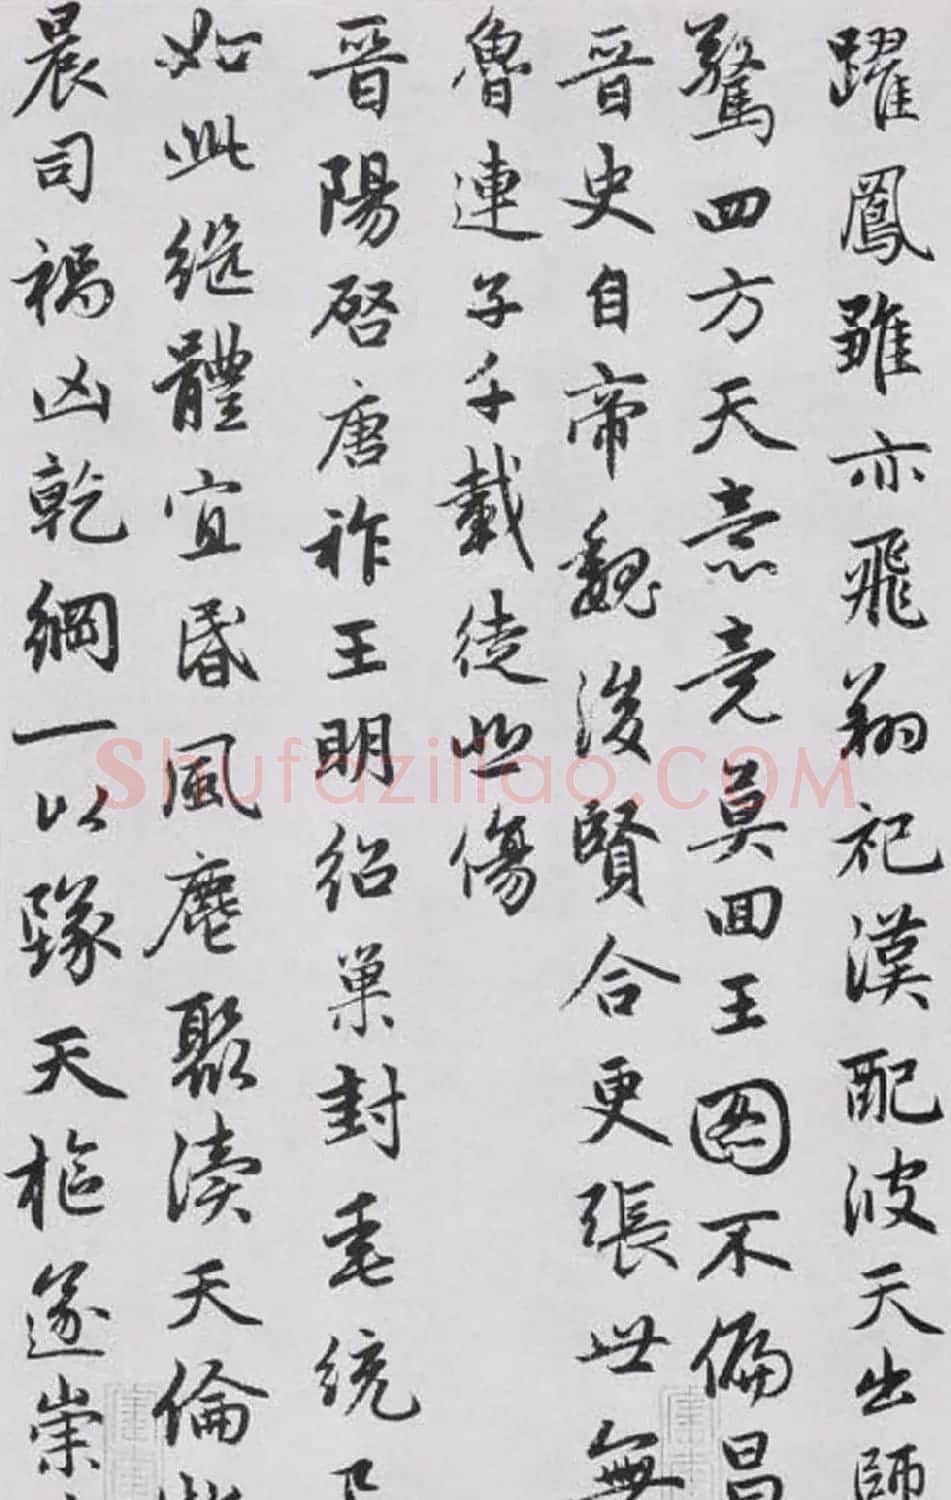 躍鳳雛亦飛翔祀漢配彼天出師
驚四方天意竟莫回王圖不偏昌
晉史自帝魏後賢合更張世無
魯連子千載徒悲傷
晉陽啓唐祚王明紹巢封垂統已
如此繼體宜昏風麀聚瀆天倫牝
晨司禍凶乾綱一以墜天樞遂崇
Shufaziliao.COM